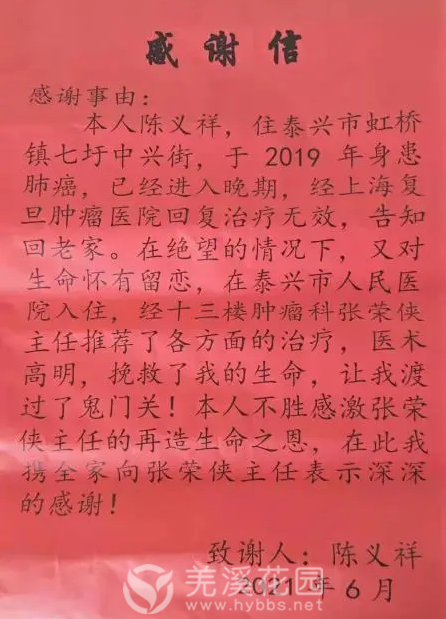 感谢信
感谢事由：
本人陈义祥，住泰兴市虹桥
镇七圩中兴街，于 2019 年身患
肺癌，已经进入晚期，经上海复
旦肿瘤医院回复治疗无效，告知
回老家。在绝望的情况下，又对
生命怀有留恋，在泰兴市人民医
院入住，经十三楼肿瘤科张荣侠
主任推荐了各方面的治疗，医术
高明，挽救了我的生命，让我渡
过了鬼门关！本人不胜感激张荣
侠主任的再造生命之恩，在此我
携全家向张荣侠主任表示深深
的感谢！
致谢人：陈义祥
2021 年 6 月
羌溪花园
www.hybbs.net